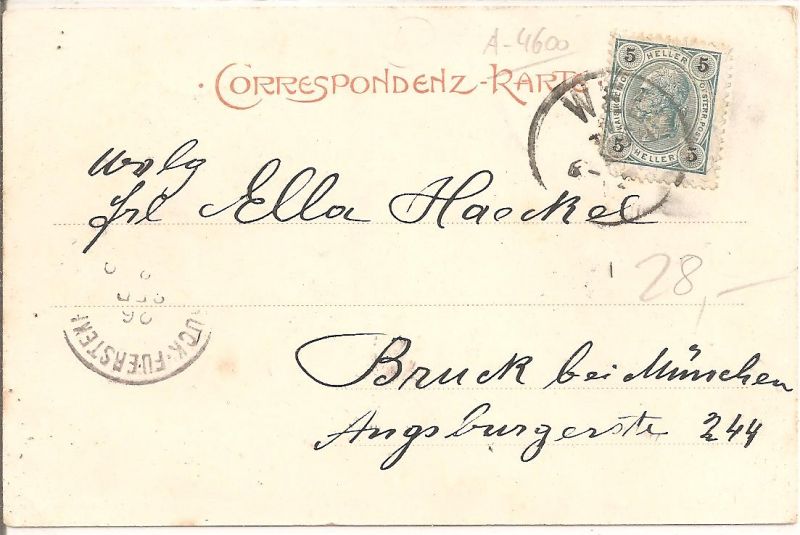 A-4600
CORRESPONDENZ-KARTE
5 HELLER 5
5 HELLER 5
W
Wolg
frl Ella Haeckel
28,-
26
UCK-FUERSTENF
Bruck bei München
Augsburgerstr 244